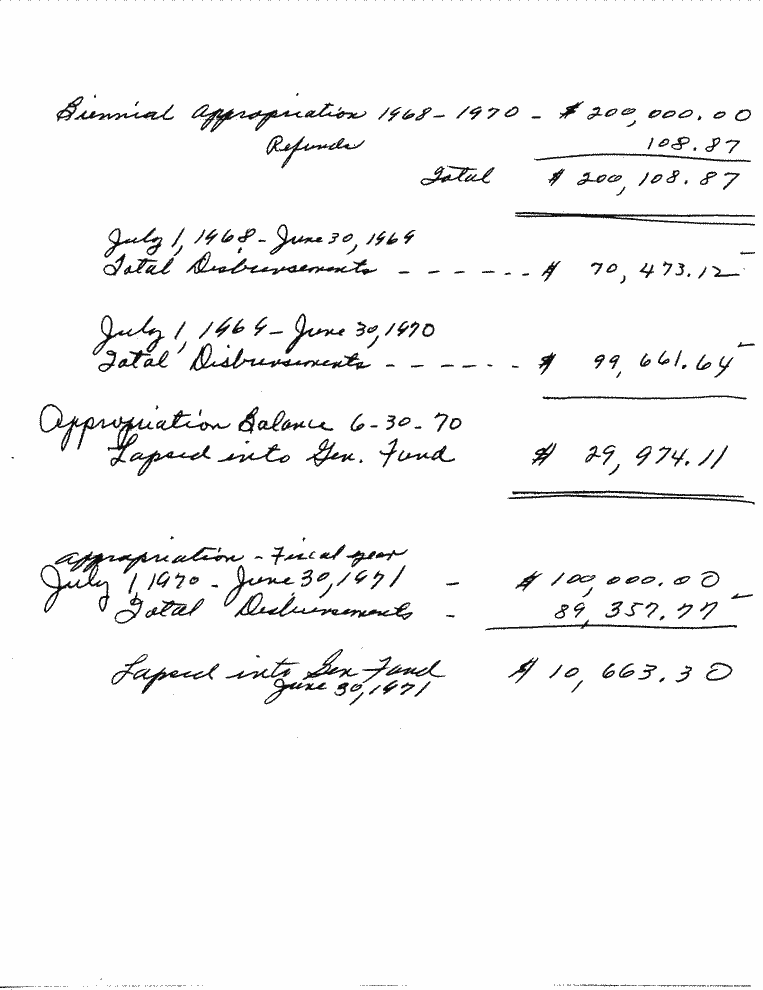 Biennial Appropriation 1968-1970 - $ 200,000.00
Refunds 108.87
Total $ 200,108.87
July 1, 1968 - June 30, 1969
Total Disbursements - - - - - - $ 70,473.12
July 1, 1969 - June 30, 1970
Total Disbursements - - - - - - $ 99,661.64
Appropriation Balance 6-30-70
Lapsed into Gen. Fund $ 29,974.11
Appropriation - Fiscal year
July 1, 1970 - June 30, 1971 - $ 100,000.00
Total Disbursements - 89,357.77
Lapsed into Gen Fund $ 10,663.30
June 30, 1971